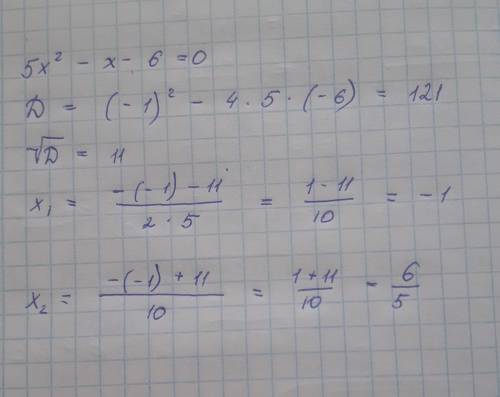 5x² - x - 6 = 0
D = (-1)² - 4 · 5 · (-6) = 121
√D = 11
x₁ = (-(-1) - 11)/(2 · 5) = (1 - 11)/10 = -1
x₂ = (-(-1) + 11)/10 = (1 + 11)/10 - 6/5